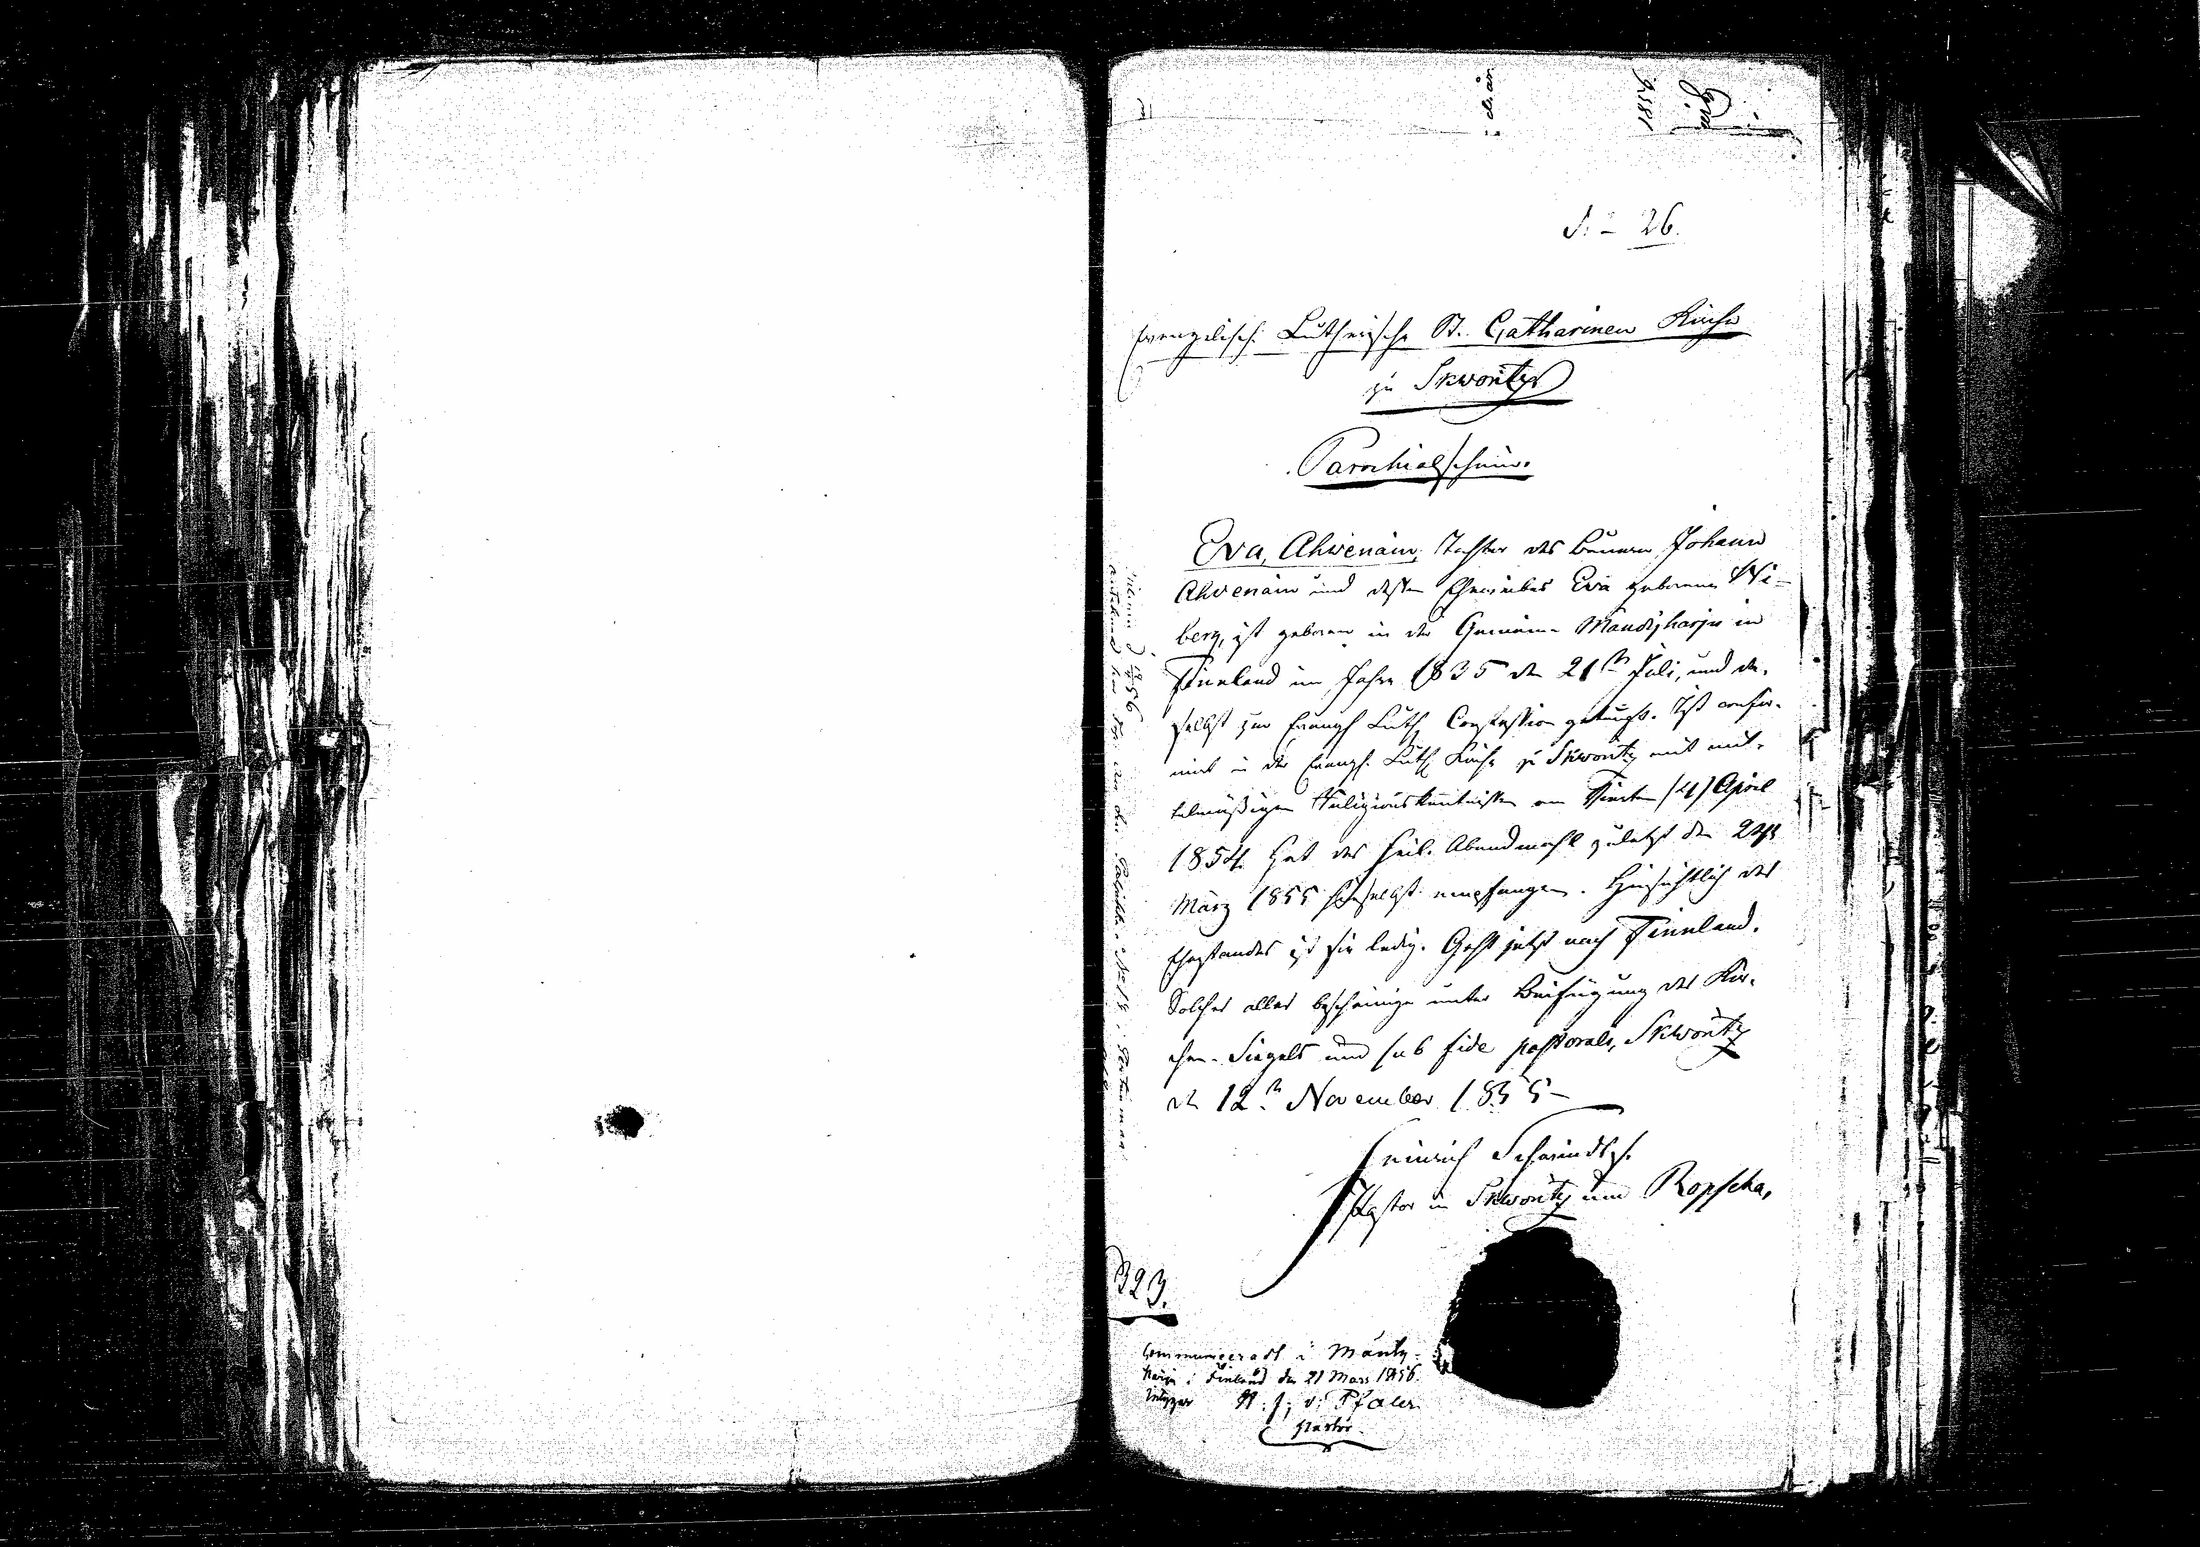 26.
Evangelisch Lutherische St. Catharinen Kirche
zu Skworitz
Parochialschein.
Eva Ahvenain, Tochter des Bauern Johann
Ahvenain und dessen Eheweibes Eva geborene Wi-
berg, ist geboren in der Gemeine Mändyharju in
Finnland im Jahre 1835 den 21ten Juli, und da-
selbst zur Evangl Luth Confession getauft. Ist confir-
mirt in der Evangl. Luth Kirche zu Skworitz mit mit-
telmäßigen Religionskenntnissen am Vierten (4) April
1854. Hat das heil. Abendmahl zuletzt den
März 1855 hieselbst empfangen. Hinsichtlich des
Ehestandes ist sie ledig. Geht jetzt nach Finnland.
Solches alles bescheinige unter Beifügung des Kir-
chen-Siegels und sub fide pastorali, Skworitz
den 12ten November 1855
Heinrich
Pastor in Skworitz und Ropscha,
323.
Communiceradt i Mänty-
harju i Finland den 21 Mars 1856.
intygar v: Pfaler
pastor.